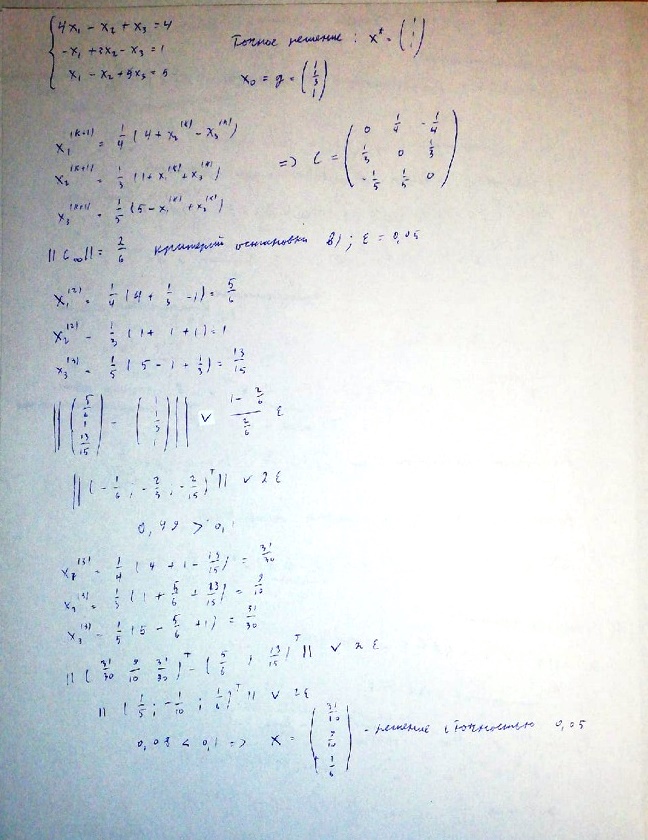 4x₁ - x₂ + x₃ = 4
-x₁ + 3x₂ - x₃ = 1
x₁ - x₂ + 5x₃ = 5
Точное решение: x* = (1 1 1)
x₀ = g = (1 1/3 1)
x₁^(k+1) = 1/4 (4 + x₂^(k) - x₃^(k))
x₂^(k+1) = 1/3 (1 + x₁^(k) + x₃^(k))
x₃^(k+1) = 1/5 (5 - x₁^(k) + x₂^(k))
=> C = (0 1/4 -1/4; 1/3 0 1/3; -1/5 1/5 0)
||C∞|| = 2/6 критерий остановки в); ε = 0,05
x₁^(2) = 1/4 (4 + 1/3 - 1) = 5/6
x₂^(2) = 1/3 (1 + 1 + 1) = 1
x₃^(2) = 1/5 (5 - 1 + 1/3) = 13/15
|| (5/6 1 13/15) - (1 1/3 1) || ∨ (1 - 2/6)/(2/6) ε
|| (-1/6; -2/3; -2/15)^T || ∨ 2ε
0,49 > 0,1
1/4 (4 + 1 - 13/15) = 31/30
1/3 (1 + 5/6 + 13/15) = 9/10
x₃^(3) = 1/5 (5 - 5/6 + 1) = 31/30
|| (31/30 9/10 31/30)^T - (5/6 1 13/15)^T || ∨ 2ε
|| (1/5; -1/10; 1/6)^T || ∨ 2ε
0,08 < 0,1 => X = (31/30 9/10 1/6) - решение с точностью 0,05